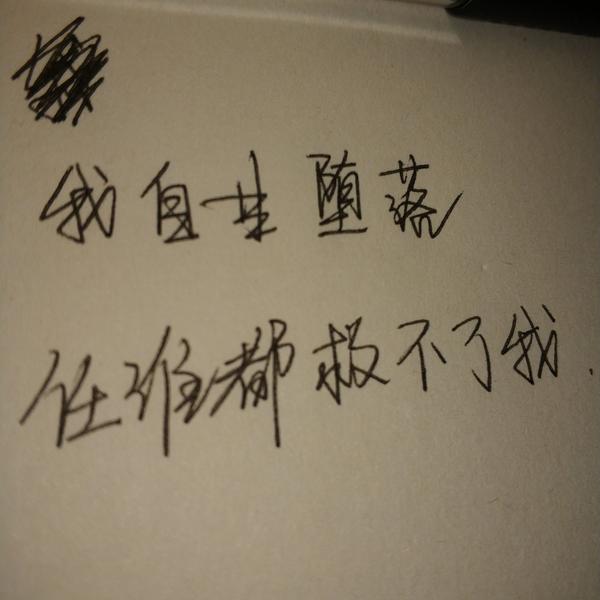 我自甘堕落
任谁都救不了我.